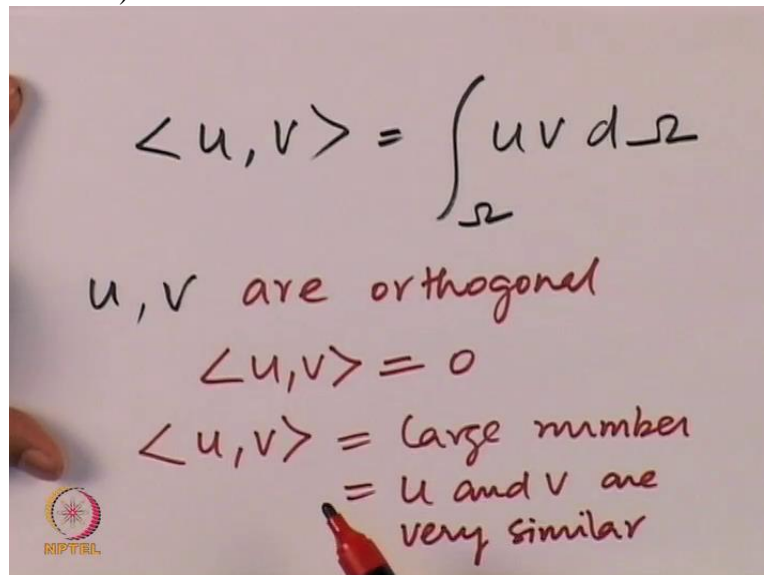 <u, v> = ∫_Ω u v d Ω
u, v are orthogonal
<u, v> = 0
<u, v> = large number
= u and v are
very similar
NPTEL